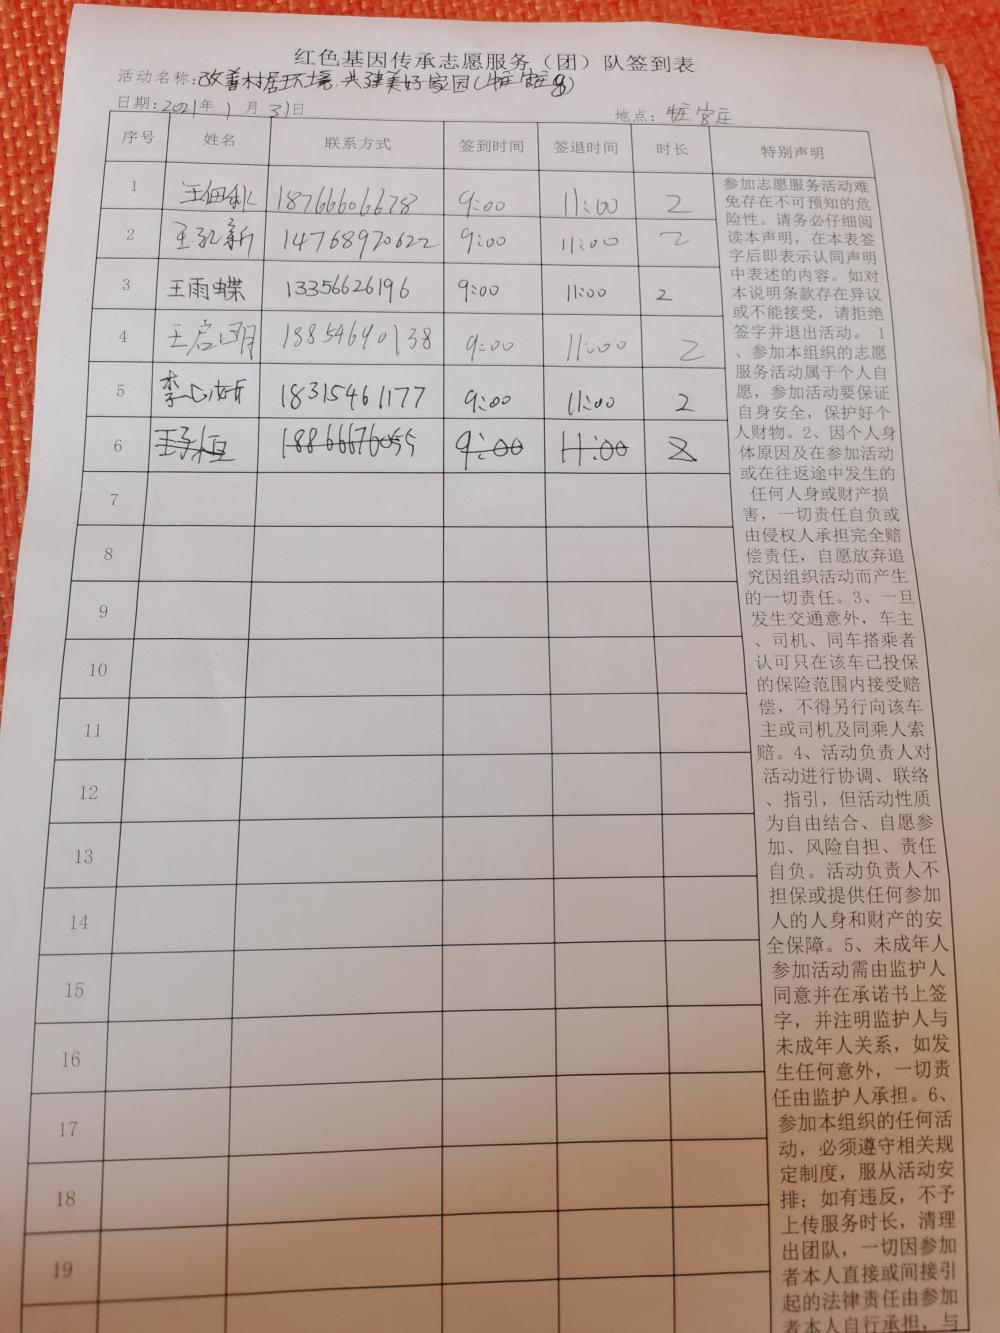 红色基因传承志愿服务（团）队签到表
活动名称：改善村居环境 共建美好家园（
日期：2021年 1 月 31日 地点：官庄
序号 姓名 联系方式 签到时间 签退时间 时长 特别声明
1 王佃 18766606678 9:00 11:00 2
2 王 新 14768970622 9:00 11:00 2
3 王雨蝶 13356626196 9:00 11:00 2
4 王启明 18854690138 9:00 11:00 2
5 李心妍 18315461177 9:00 11:00 2
6 王子恒 18866676055 9:00 11:00 2
7
8
9
10
11
12
13
14
15
16
17
18
19
参加志愿服务活动难
免存在不可预知的危
险性。请务必仔细阅
读本声明，在本表签
字后即表示认同声明
中表述的内容。如对
本说明条款存在异议
或不能接受，请拒绝
签字并退出活动。 1
、参加本组织的志愿
服务活动属于个人自
愿，参加活动要保证
自身安全，保护好个
人财物。2、因个人身
体原因及在参加活动
或在往返途中发生的
任何人身或财产损
害，一切责任自负或
由侵权人承担完全赔
偿责任，自愿放弃追
究因组织活动而产生
的一切责任。3、一旦
发生交通意外，车主
、司机、同车搭乘者
认可只在该车已投保
的保险范围内接受赔
偿，不得另行向该车
主或司机及同乘人索
赔。4、活动负责人对
活动进行协调、联络
、指引，但活动性质
为自由结合、自愿参
加、风险自担、责任
自负。活动负责人不
担保或提供任何参加
人的人身和财产的安
全保障。5、未成年人
参加活动需由监护人
同意并在承诺书上签
字，并注明监护人与
未成年人关系，如发
生任何意外，一切责
任由监护人承担。6、
参加本组织的任何活
动，必须遵守相关规
定制度，服从活动安
排；如有违反，不予
上传服务时长，清理
出团队，一切因参加
者本人直接或间接引
起的法律责任由参加
者本人自行承担，与